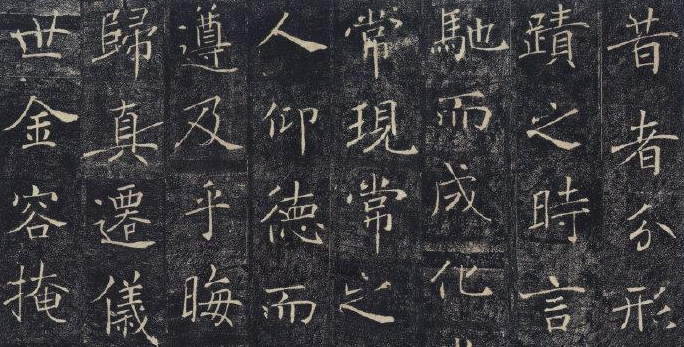 昔者分形
蹟之時言
馳而成化
常現常之
人仰德而
遵及乎晦
歸真遷儀
世金容掩